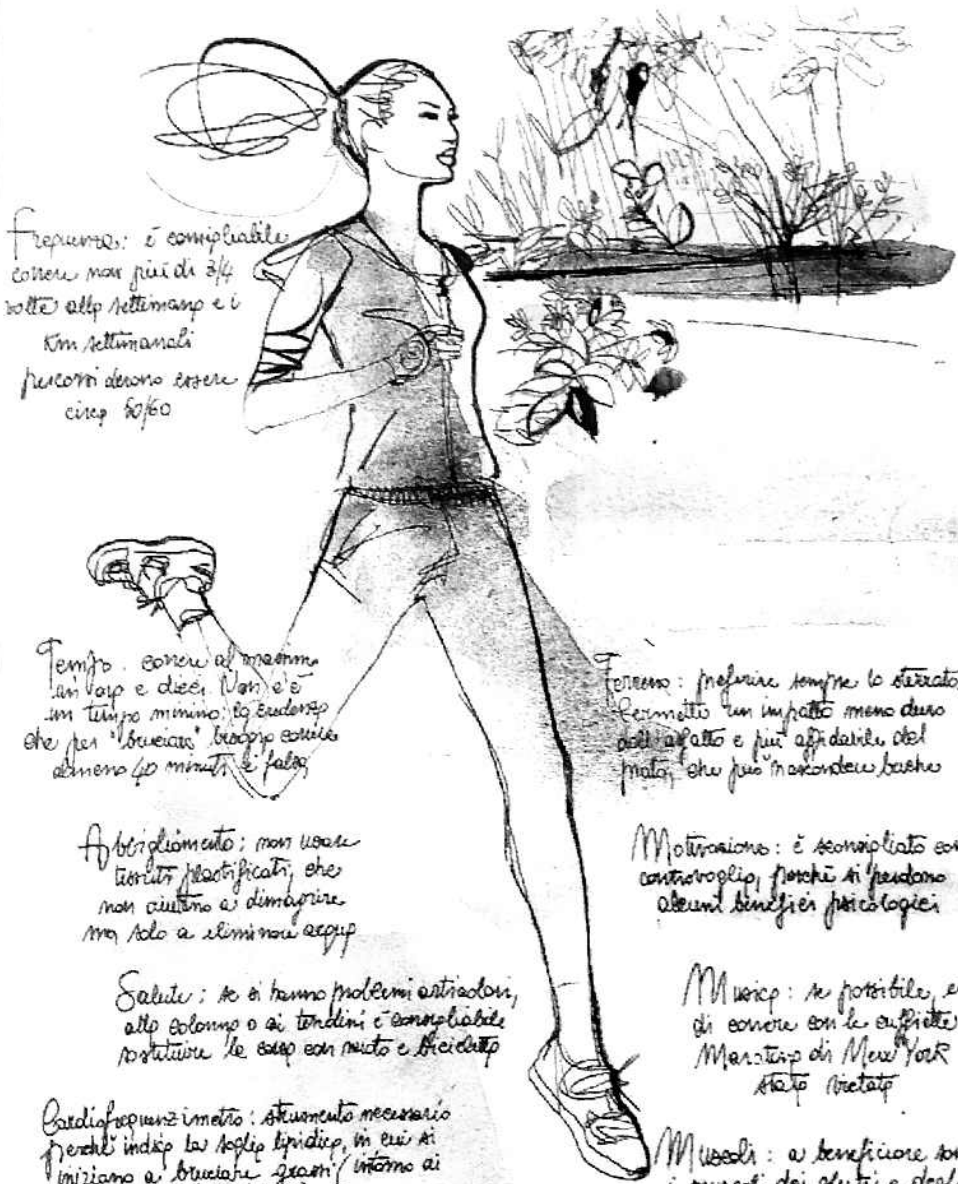 Frequenza: è consigliabile
correre non più di 3/4
volte alla settimana e i
Km settimanali
percorsi devono essere
circa 50/60
Tempo. correre al massimo
un'ora e dieci. Non c'è
un tempo minimo: la credenza
che per "bruciare" bisogna correre
almeno 40 minuti è falsa
Abbigliamento: non usare
tessuti plastificati, che
non aiutano a dimagrire
ma solo a eliminare acqua
Salute: se si hanno problemi articolari,
alla colonna o ai tendini è consigliabile
sostituire la corsa con nuoto e bicicletta
Cardiofrequenzimetro: strumento necessario
perchè indica la soglia lipidica, in cui si
iniziano a bruciare grassi (intorno ai
Terreno: preferire sempre lo sterrato,
Permette un impatto meno duro
dell'asfalto e più affidabile del
prato, che può nascondere buche
Motivazione: è sconsigliato
controvoglia, perchè si perdono
alcuni benefici psicologici
Musica: se possibile,
di correre con le cuffiette
Maratona di New York
stata vietata
Muscoli: a beneficiare
i muscoli dei glutei e